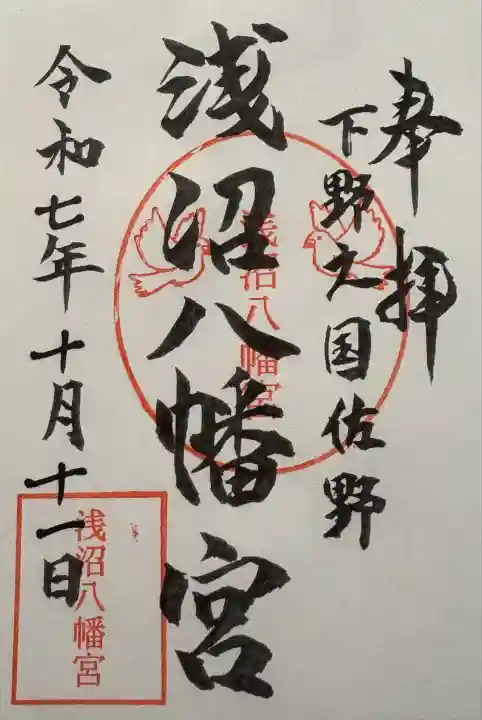 奉拝
下野之国佐野
浅沼八幡宮
浅沼八幡宮
令和七年十月十一日
浅沼八幡宮